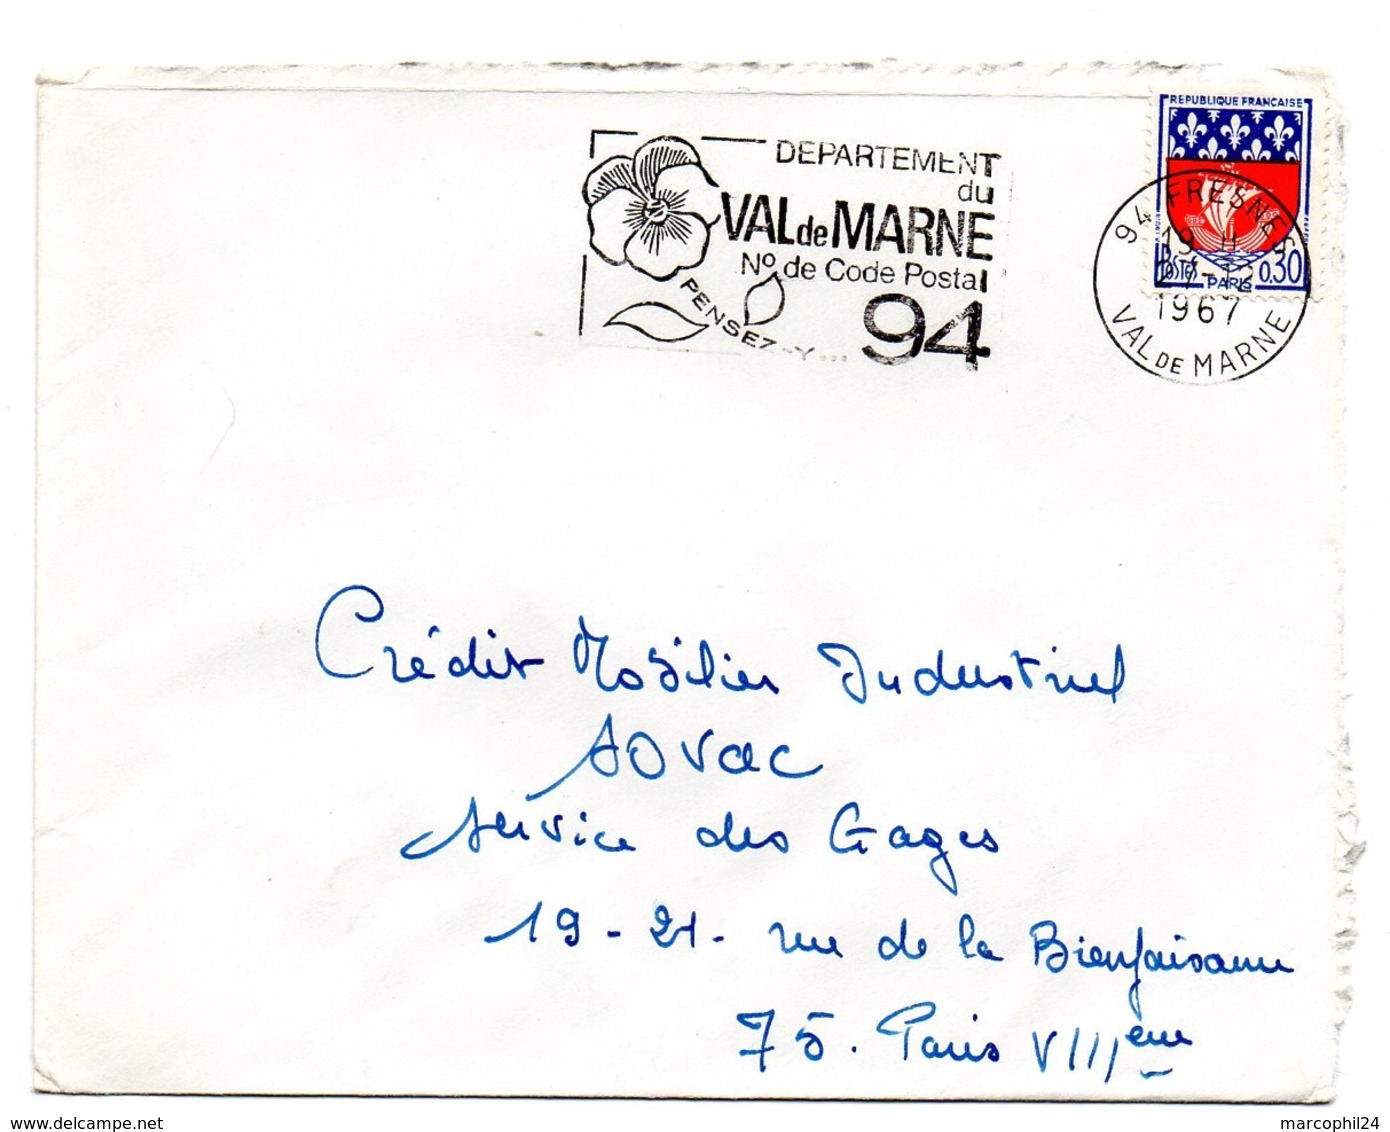 REPUBLIQUE FRANÇAISE
DEPARTEMENT
du
VAL de MARNE
Nº de Code Postal
94
PENSEZ-Y...
94 FRESNES
19 H
-12
1967
VAL DE MARNE
POSTES
PARIS
0,30
Crédit Mobilier Industriel
SOVAC
Service des Gages
19-21- rue de la Bienfaisance
75. Paris VIIIème
www.delcampe.net
marcophil24